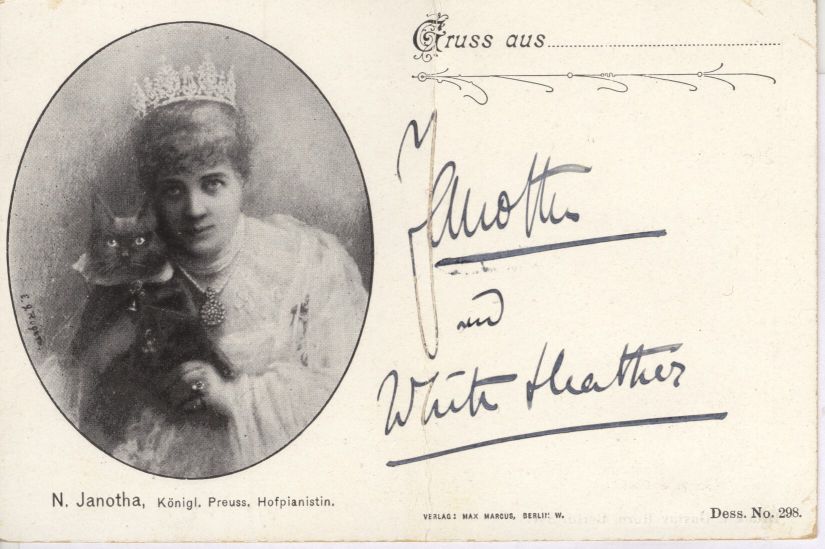 Gruss aus
Janotha
und
White Heather
N. Janotha, Königl. Preuss. Hofpianistin.
VERLAG: MAX MARCUS, BERLIN W.
Dess. No. 298.